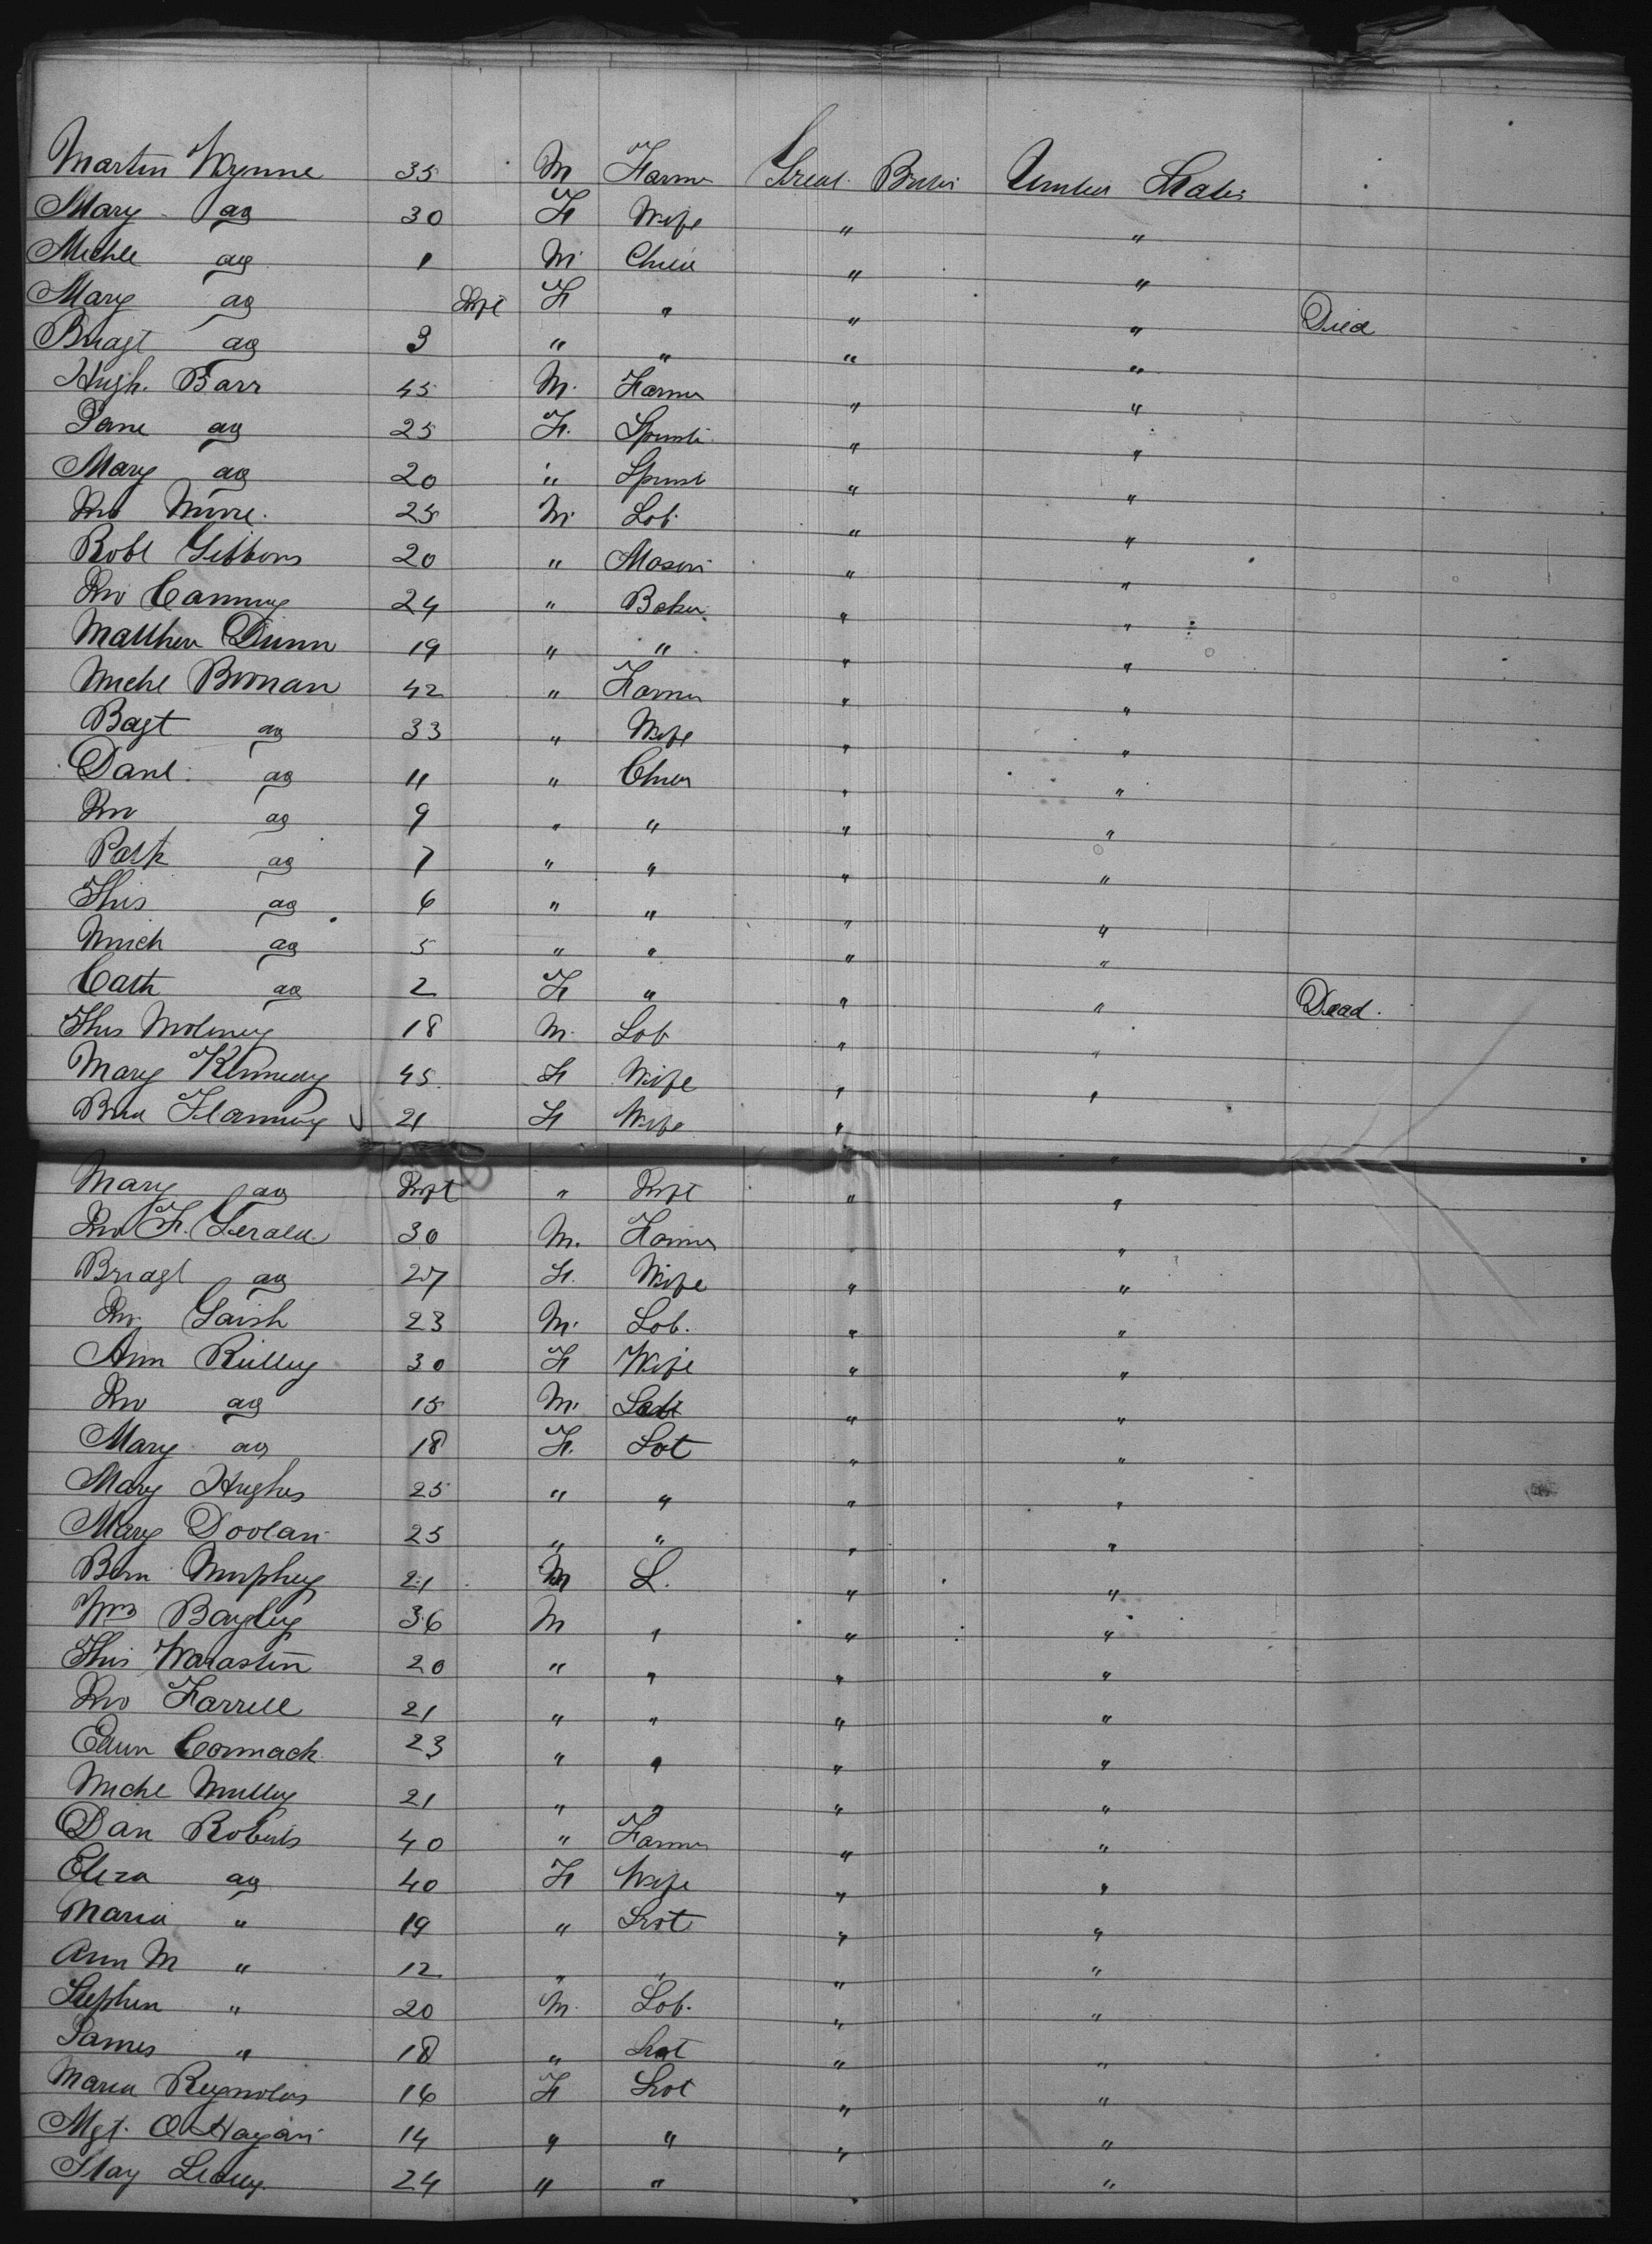 Martin Wynne 35 M Farmer Great Britn United States
Mary do 30 F Wife " "
Michl do 1 M Child " "
Mary do Inft F " " " Died
Bridgt do 3 " " " "
Hugh. Barr 45 M. Farmer " "
Jane do 25 F. Spinst " "
Mary do 20 " Spinst " "
Jno 25 M Lab. " "
Robt Gibbons 20 " Mason " "
Jno Canning 24 " Baker " "
Matthew Dunn 19 " " " "
Michl 42 " Farmer " "
Bdgt do 33 " Wife " "
Danl. do 11 " Child " "
Jno do 9 " " " "
Patk do 7 " " " "
Thos do 6 " " " "
Mich do 5 " " " "
Cath do 2 F " " " Dead.
Thos 18 M. Lab " "
Mary Kennedy 45 F Wife " "
21 F Wife " "
Mary do Inft " Inft " "
Jno F. Gerald. 30 M. Farmer "
Bridgt do 27 F. Wife " "
Jno 23 M. Lab. " "
Ann Reilley 30 F Wife " "
Jno do 15 M. " "
Mary do 18 F. " "
Mary Hughes 25 " " " "
Mary Doolan 25 " " " "
Bern Murphey 21 M L. " "
Wm Bayley 36 M " " "
Thos 20 " " " "
Jno Farrell 21 " " " "
Edwn Cormack 23 " " " "
Michl Mulley 21 " " " "
Dan Roberts 40 " Farmer " "
Eliza do 40 F Wife " "
Maria " 19 " " "
Ann M " 12 " " " "
Stephen " 20 M. Lab. " "
James " 18 " " "
Maria Reynolds 16 F " "
Mgt. O Hagan 14 " " " "
24 " " "